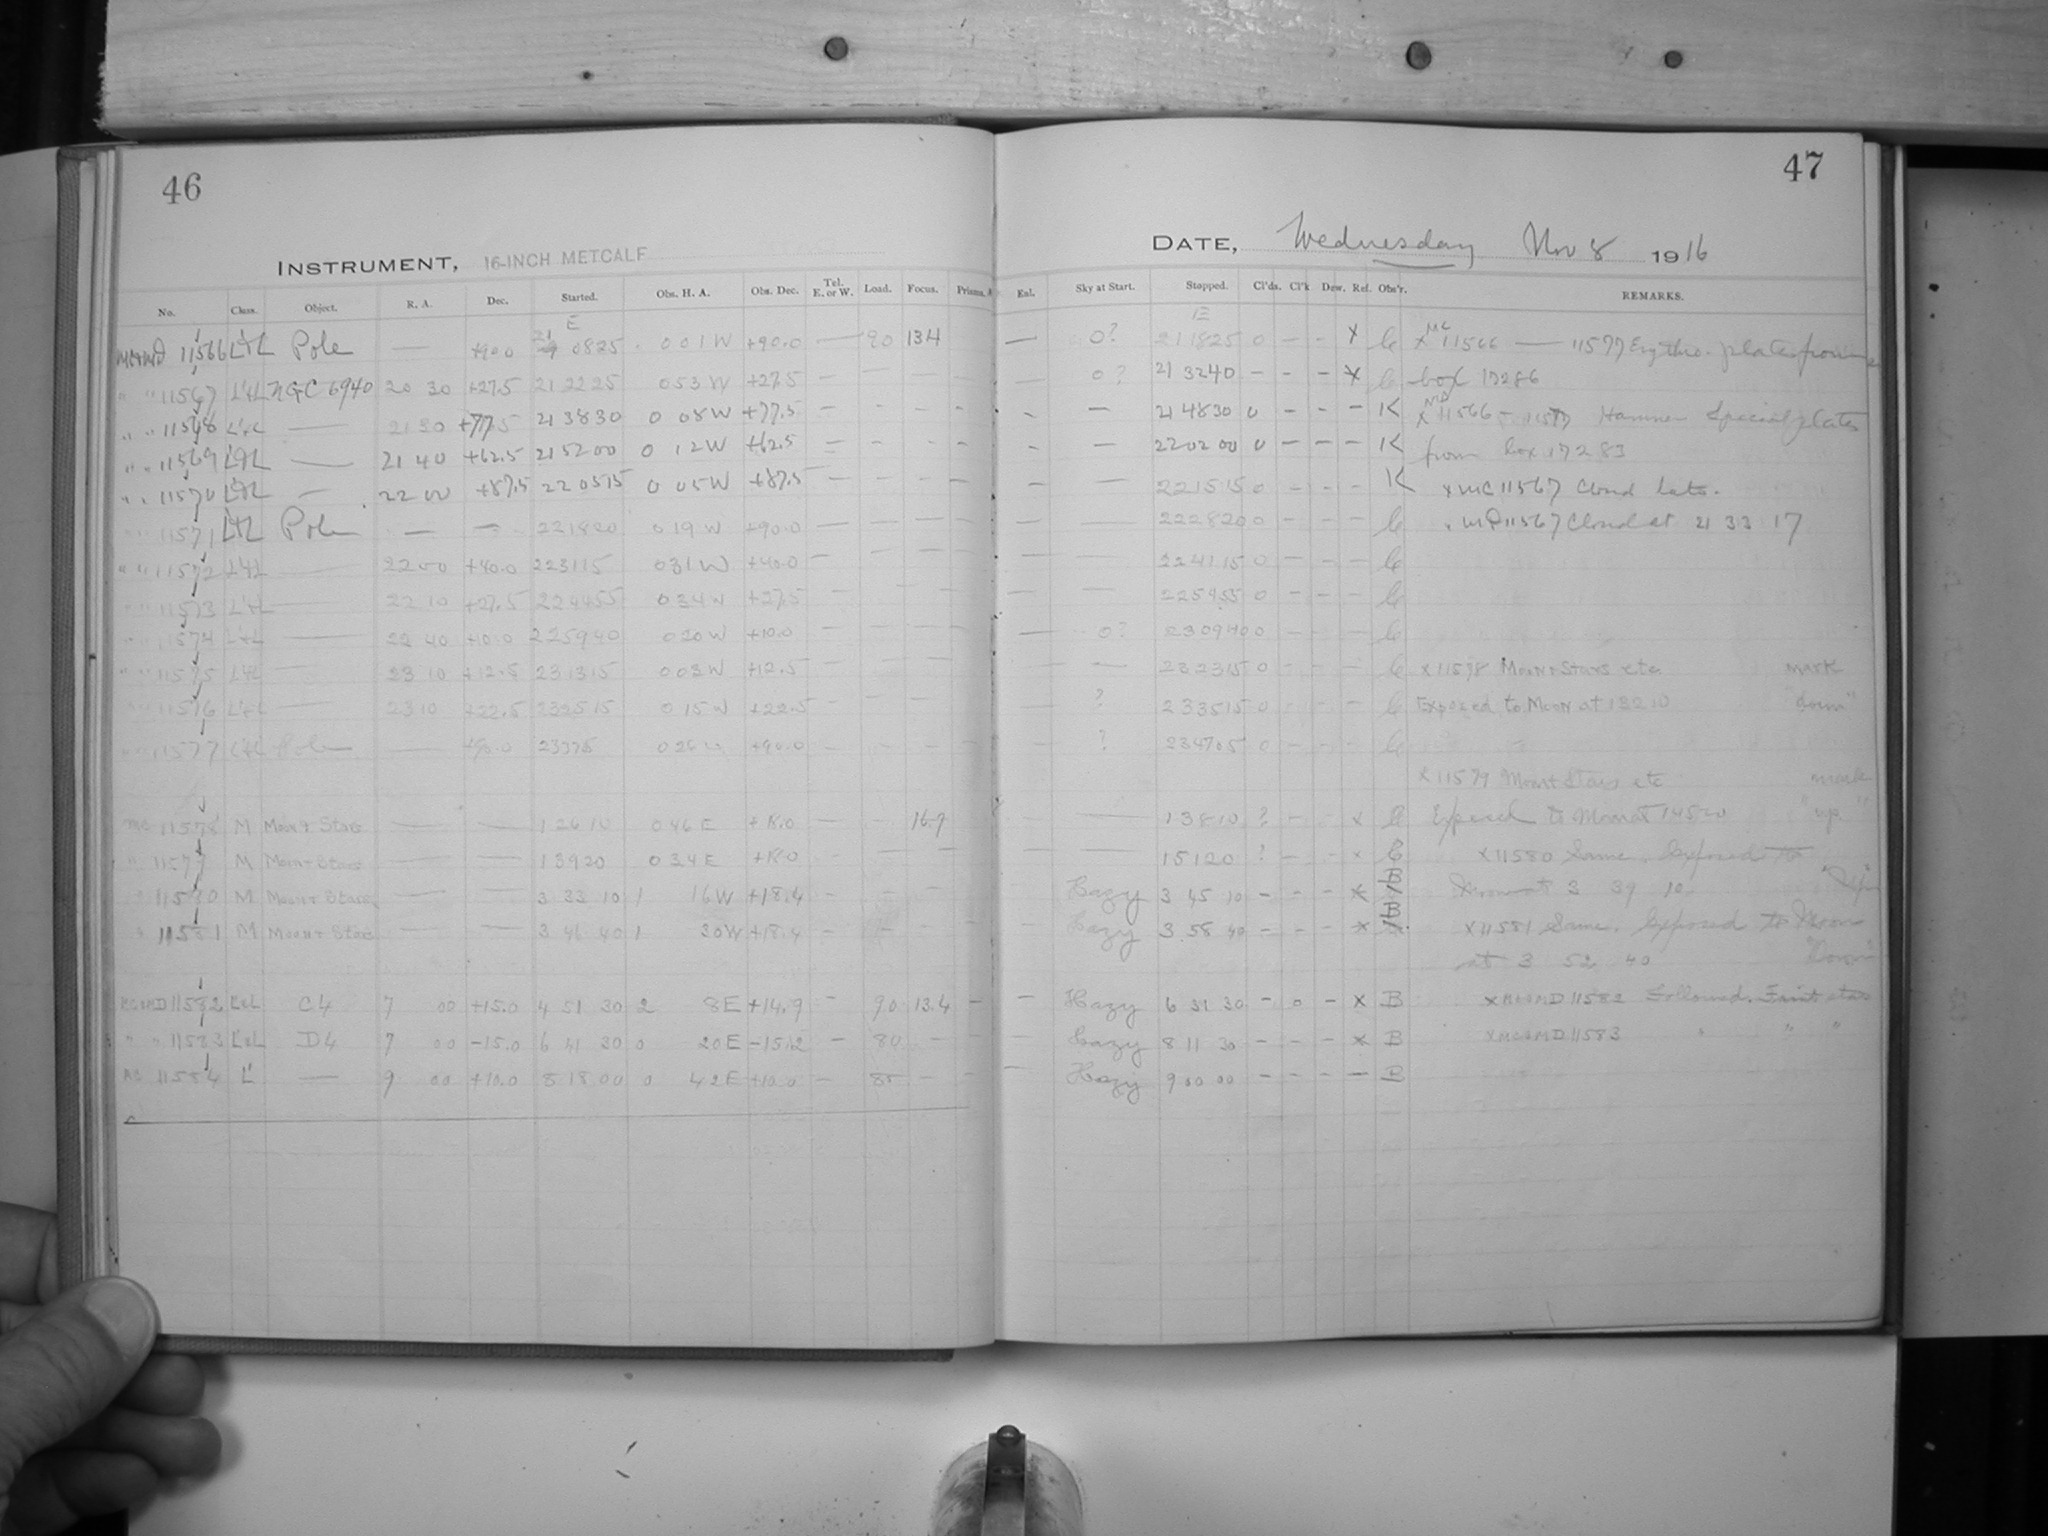 46
INSTRUMENT, 16-INCH METCALF
No. Class. Object. R. A. Dec. Started. Obs. H. A. Obs. Dec. Tel. E. or W. Load. Focus. Prisms.
11566 L+L Pole — +90.0 0825 0 01 W +90.0 — 90 13.4
" " 11567 L+L NGC 6940 20 30 +27.5 21 22 25 0 53 W +27.5 — — —
" " 11568 L+L — 21 30 +77.5 21 38 30 0 08 W +77.5 — — —
" " 11569 L+L — 21 40 +62.5 21 52 00 0 12 W +62.5 — — —
" " 11570 L+L — 22 00 +87.5 22 05 15 0 05 W +87.5 — — —
" " 11571 L+L Pole — — 22 18 20 0 19 W +90.0 — — —
" " 11572 L+L — 22 00 +40.0 22 31 15 0 31 W +40.0 — — —
" " 11573 L+L — 22 10 +27.5 22 44 55 0 34 W +27.5 — — —
" " 11574 L+L — 22 40 +10.0 22 59 40 0 20 W +10.0 — — —
" " 11575 L+L — 23 10 +12.5 23 13 15 0 03 W +12.5 — — —
" " 11576 L+L — 23 10 +22.5 23 25 15 0 15 W +22.5 — — —
" " 11577 L+L Pole — +90.0 +90.0 — — —
MC 11578 M Moon + Stars — — 1 26 10 0 46 E +18.0 — — 16.9
" M Moon + Stars — — 1 39 20 0 34 E +18.0 — — —
" 11580 M Moon + Stars — — 3 33 10 1 16 W +18.4 — — —
" 11581 M Moon + Stars — — 3 46 40 1 30 W +18.4 — — —
MC+MD 11582 L+L C4 7 00 +15.0 4 51 30 2 8 E +14.9 — 90 13.4 —
" " 11583 L+L D4 7 00 −15.0 6 41 30 0 20 E −15.2 — 80 — —
MC 11584 L — 9 00 +10.0 8 18 00 0 42 E +10.0 — 85 — —
47
DATE, Wednesday Nov 8 1916
Enl. Sky at Start. Stopped. Cl'ds. Cl'k Dew. Ref. Obs'r. REMARKS.
— 0? 21 18 25 0 — — x C x MC 11566 — 11577 Erythro. plate from
— 0? 21 32 40 — — — x C box 17286
— — 21 48 30 0 — — — K x MD 11566 — 11577 Hammer Special plates
— — 22 02 00 0 — — — K from box 17283
— — 22 15 15 0 — — — K x MC 11567 Cloud Late.
— — 22 28 20 0 — — — C x MD 11567 Cloud at 21 33 17
— — 22 41 15 0 — — — C
— — 22 54 55 0 — — — C
— 0? 23 09 40 0 — — — C
— — 23 23 15 0 — — — C x 11578 Moon + Stars etc mark
— ? 23 35 15 0 — — — C Exposed to Moon at 1 32 10 "down"
— ? 23 47 05 0 — — — C
x 11579 Moon + Stars etc mark
— 1 38 10 ? — — x C Exposed to Moon at 1 45 20 "up"
— 1 51 20 ? — — x C x 11580 Same. Exposed to
Hazy 3 45 10 — — — x B Moon at 3 39 10 "Up"
Hazy 3 58 40 — — — x B x 11581 Same. Exposed to Moon
at 3 52 40 "Down"
— Hazy 6 31 30 — 0 — x B x MC+MD 11582 Followed. Faint star
— Hazy 8 11 30 — — — x B x MC+MD 11583 " " "
— Hazy 9 00 00 — — — — B